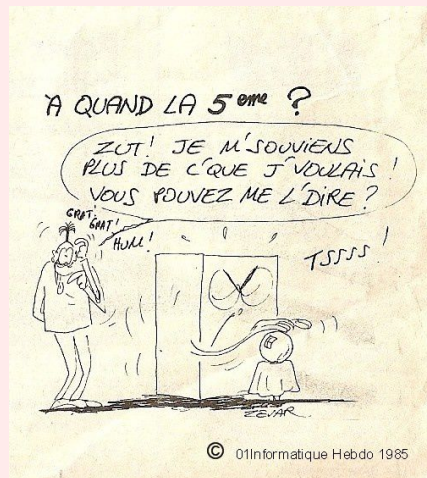 A QUAND LA 5eme ?
ZUT! JE M'SOUVIENS
PLUS DE C'QUE J'VOULAIS!
VOUS POUVEZ ME L'DIRE?
GRAT!
GRAT!
HUM!
TSSSS!
ZEVAR
© 01Informatique Hebdo 1985